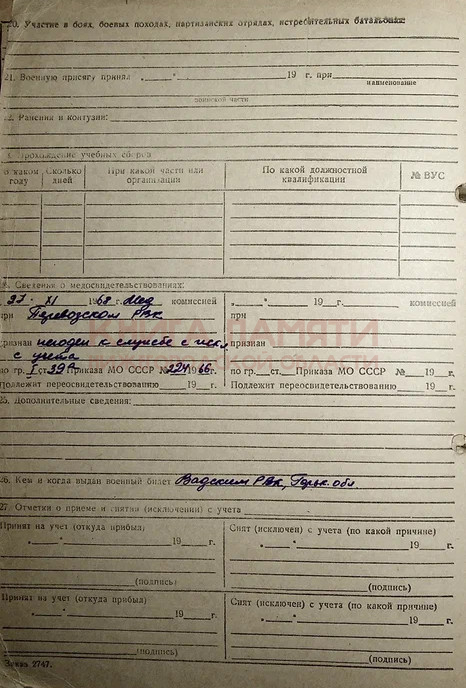 20. Участие в боях, боевых походах, партизанских отрядах, истребительных батальонах:
21. Военную присягу принял „ “ 19 г. при
наименование
воинской части
22. Ранения и контузии:
Прохождение учебных сборов
В каком году
Сколько дней
При какой части или организации
По какой должностной квалификации
№ ВУС
Сведения о медосвидетельствованиях:
27 XI 1968 г. Мед комиссией
при Перевозском РВК
признан негоден к службе с искл.
с учета
по гр. I ст. 39а Приказа МО СССР № 224 1966 г.
Подлежит переосвидетельствованию 19 г.
„ “ 19 г. комиссией
при
признан
по гр. ст. Приказа МО СССР № 19 г.
Подлежит переосвидетельствованию 19 г.
КНИГА ПАМЯТИ
ОБЛАСТИ
25. Дополнительные сведения:
26. Кем и когда выдан военный билет Вадским РВК, Горьк. обл
27. Отметки о приеме и снятии (исключении) с учета
Принят на учет (откуда прибыл)
„ “ 19 г.
(подпись)
Снят (исключен) с учета (по какой причине)
„ “ 19 г.
(подпись)
Принят на учет (откуда прибыл)
„ “ 19 г.
(подпись)
Снят (исключен) с учета (по какой причине)
„ “ 19 г.
(подпись)
Заказ 2747.